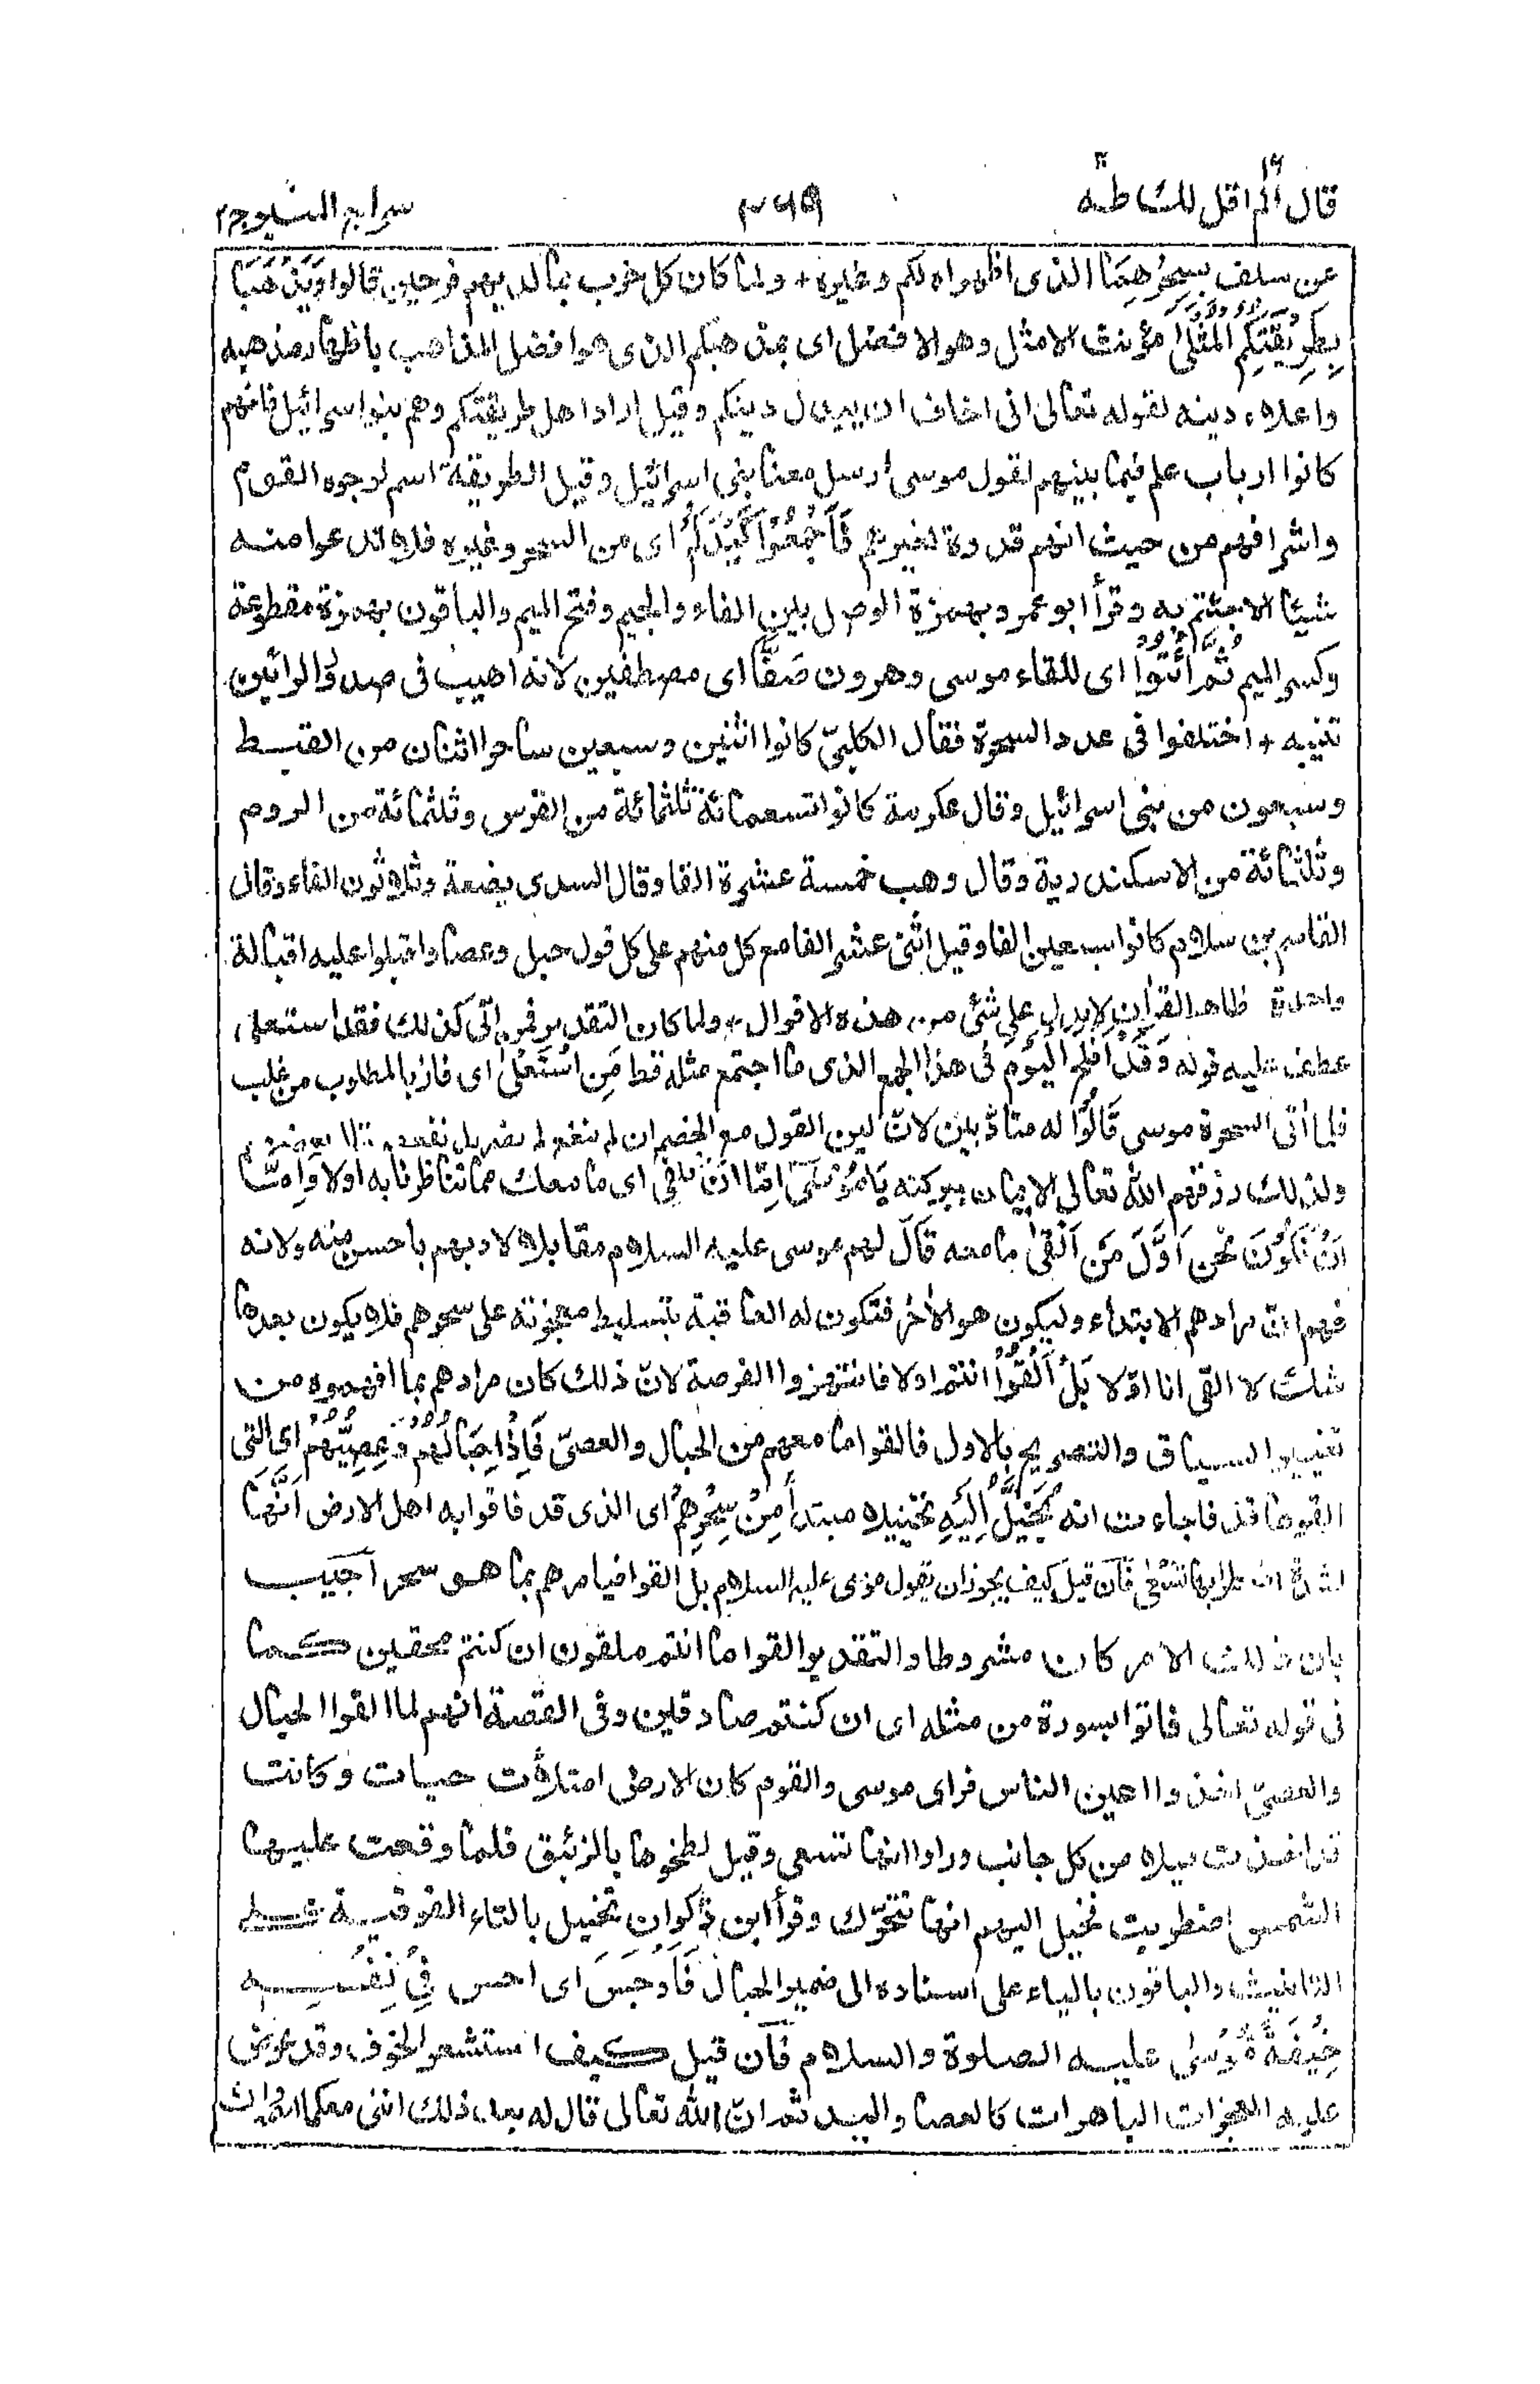 قال الم اقل لك ١٦ طه ٢٠
٤٦٩
سراج المنير ج ٢
عن سلف بِسِحْرِهِمَا الذى اظهراه لكم وغيره + ولما كان كل حزب بما لديهم فرحين قالوا وَيَذْهَبَا
بِطَرِيْقَتِكُمُ الْمُثْلٰى مؤنث الامثل وهو الافضل اى بمذهبكم الذى هو افضل المذاهب باظهار مذهبه
واعلاء دينه لقوله تعالى انى اخاف ان يبدل دينكم وقيل ارادا هل طريقتكم وهم بنو اسرائيل فانهم
كانوا ارباب علم فيما بينهم لقول موسى ارسل معنا بنى اسرائيل وقيل الطريقة اسم لوجوه القوم
واشرافهم من حيث انهم قدوة لغيرهم فَاَجْمِعُوْا كَيْدَكُمْ اى من السحر وغيره فلا تدعوا منه
شيئا الا جئتم به وقرأ ابو عمرو بهمزة الوصل بين الفاء والجيم وفتح الميم والباقون بهمزة مقطوعة
وكسر الميم ثُمَّ ائْتُوْا اى للقاء موسى وهرون صَفًّا اى مصطفين لانه اهيب فى صدور الرائين
تنبيه + اختلفوا فى عدد السحرة فقال الكلبىّ كانوا اثنين وسبعين ساحرا اثنان من القبط
وسبعون من بنى اسرائيل وقال عكرمة كانوا تسعمائة ثلثمائة من الفرس وثلثمائة من الروم
وثلثمائة من الاسكندرية وقال وهب خمسة عشرة الفا وقال السدى بضعة وثلاثون الفاء وقال
القاسم بن سلام كانوا سبعين الفا وقيل اثنى عشر الفا مع كل منهم على كل قول حبل وعصا واقبلوا عليه اقبالة
واحدة ظاهر القراٰن لا يدل على شئ من هذه الاقوال + ولما كان التقدير فمن اتى كذلك فقد استعلى
عطف عليه قوله وَقَدْ اَفْلَحَ الْيَوْمَ فى هذا الجمع الذى ما اجتمع مثله قط مَنِ اسْتَعْلٰى اى فاز بالمطلوب من غلب
فلما أتى السحرة موسى قَالُوْا له متأدّبين لانّ لين القول مع الخصم ان لم ينفع لم يضر بل نفعهم
ولذلك رزقهم الله تعالى الايمان ببركته يَا مُوْسٰى اِمَّا اَنْ تُلْقِىَ اى ما معك مما تناظرنا به اولا وَاِمَّا
اَنْ نَّكُوْنَ نحن اَوَّلَ مَنْ اَلْقٰى ما معه قَالَ لهم موسى عليه السلام مقابلا لادبهم باحسن منه ولانه
فهم انّ مرادهم الابتداء وليكون هو الاٰخر فتكون له العاقبة بتسليط معجزته على سحرهم فلا يكون بعدها
شك لا القى انا اوّلا بَلْ اَلْقُوْا انتم اولا فانتهزوا الفرصة لانّ ذلك كان مرادهم بما افهموه من
تغيير السياق والتصريح بالاول فالقوا ما معهم من الحبال والعصىّ فَاِذَا حِبَالُهُمْ وَعِصِيُّهُمْ اى التى
القوها قد فاجاءت انه يُخَيَّلُ اِلَيْهِ تخييلا مبتدأ مِنْ سِحْرِهِمْ اى الذى قد فاقوا به اهل الارض اَنَّهَا
لشدة اضطرابها تَسْعٰى فان قيل كيف يجوز ان يقول موسى عليه السلام بل القوا فيامرهم بما هو سحر اجيب
بان ذلك الامر كان مشروطا والتقدير القوا ما انتم ملقون ان كنتم محقين كما
فى قوله تعالى فاتوا بسورة من مثله اى ان كنتم صادقين وفى القصة انهم لما القوا الحبال
والعصىّ اخذوا اعين الناس فراى موسى والقوم كان الارض امتلأت حيات وكانت
قد اخذت ميلا من كل جانب وراوا انها تسعى وقيل لطخوها بالزئبق فلما وقعت عليها
الشمس اضطربت فخيل اليهم انها تتحرّك وقرأ ابن ذكوان تخيل بالتاء الفوقية على
التانيث والباقون بالياء على اسناده الى ضمير الحبال فَاَوْجَسَ اى احس فِىْ نَفْسِهٖ
خِيْفَةً مُّوْسٰى عليه الصلوة والسلام فان قيل كيف استشعر الخوف وقد عرض
عليه المعجزات الباهرات كالعصا واليد ثم انّ الله تعالى قال له بعد ذلك اننى معكما اسمع وارى